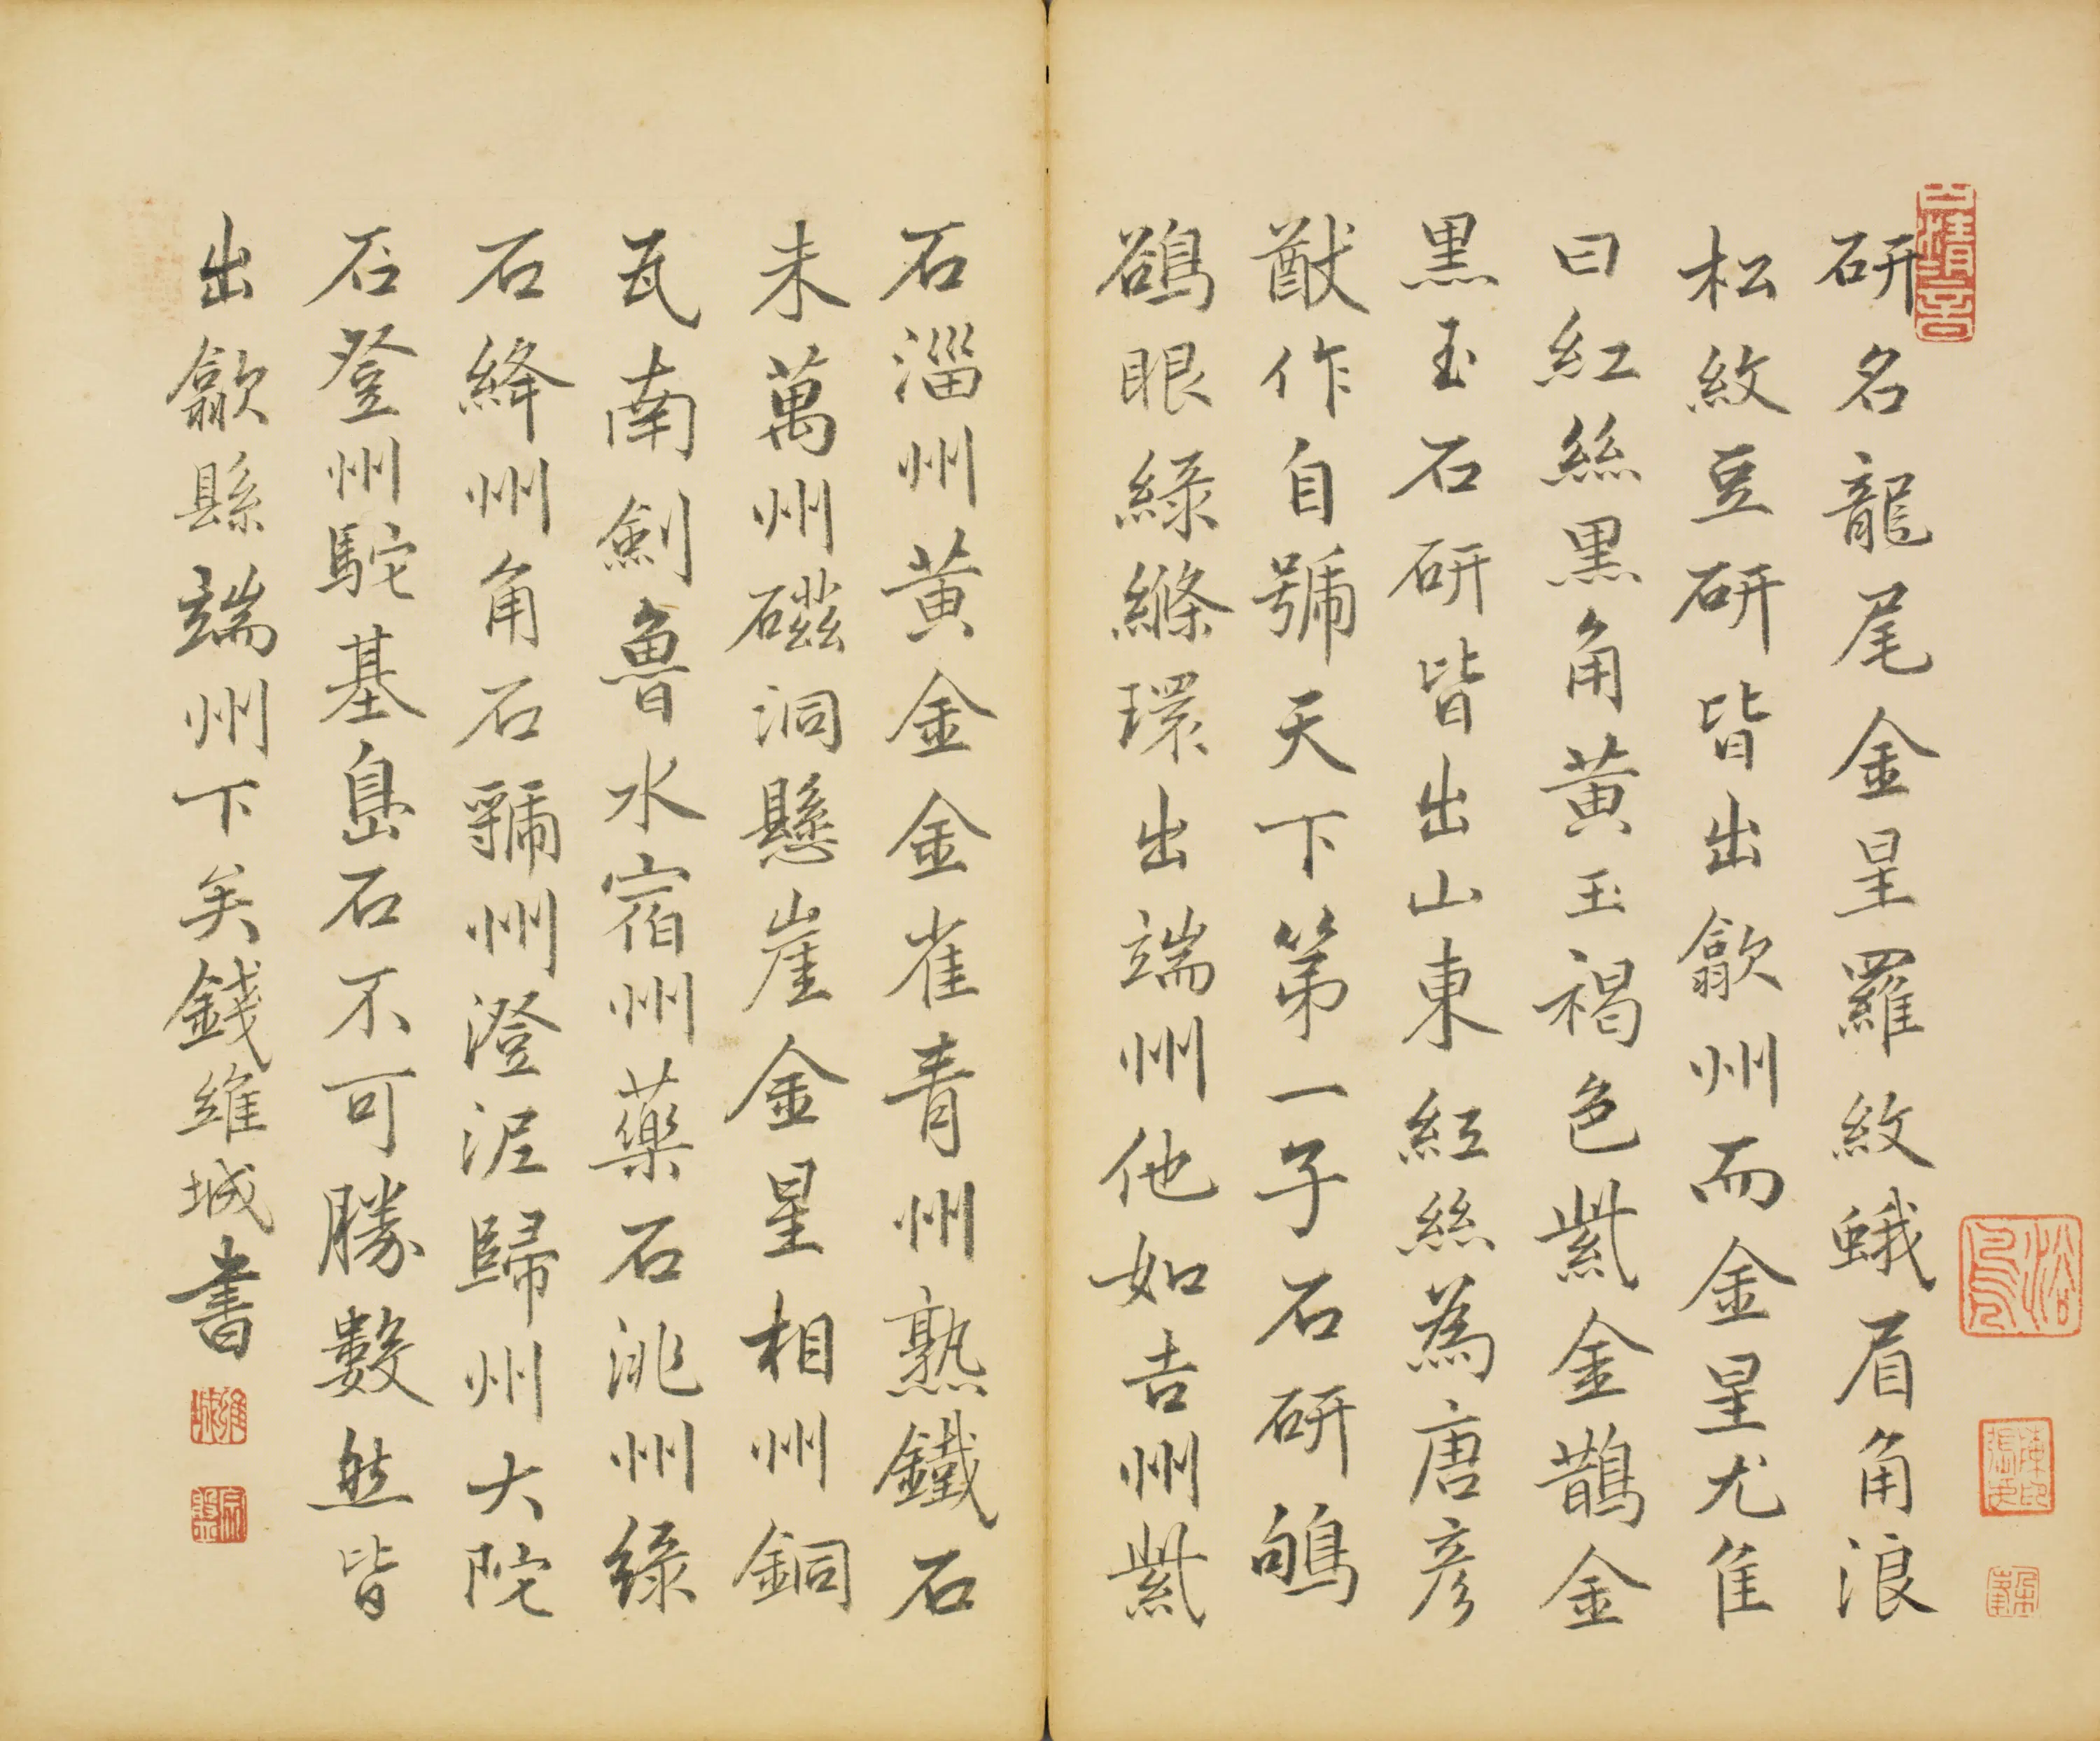 研名龍尾金星羅紋蛾眉角浪
松紋豆研皆出歙州而金星尤佳
曰紅絲黑角黃玉褐色紫金鵲金
黑玉石研皆出山東紅絲為唐彥
猷作自號天下第一子石研鴝
鵒眼綠絛環出端州他如吉州紫
石淄州黃金金雀青州熟鐵石
未萬州磁洞懸崖金星相州銅
瓦南劍魯水宿州藥石洮州綠
石絳州角石虢州澄泥歸州大陀
石登州駝基島石不可勝數然皆
出歙縣端州下矣錢維城書
維城